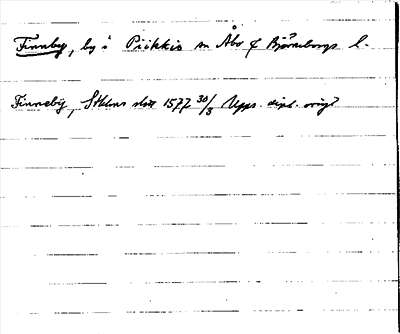 Finnby, by i Piikkis sn Åbo o Björneborgs l.
Finneby, Sthlms slott 1577 30/3 Upps. dipl. orig